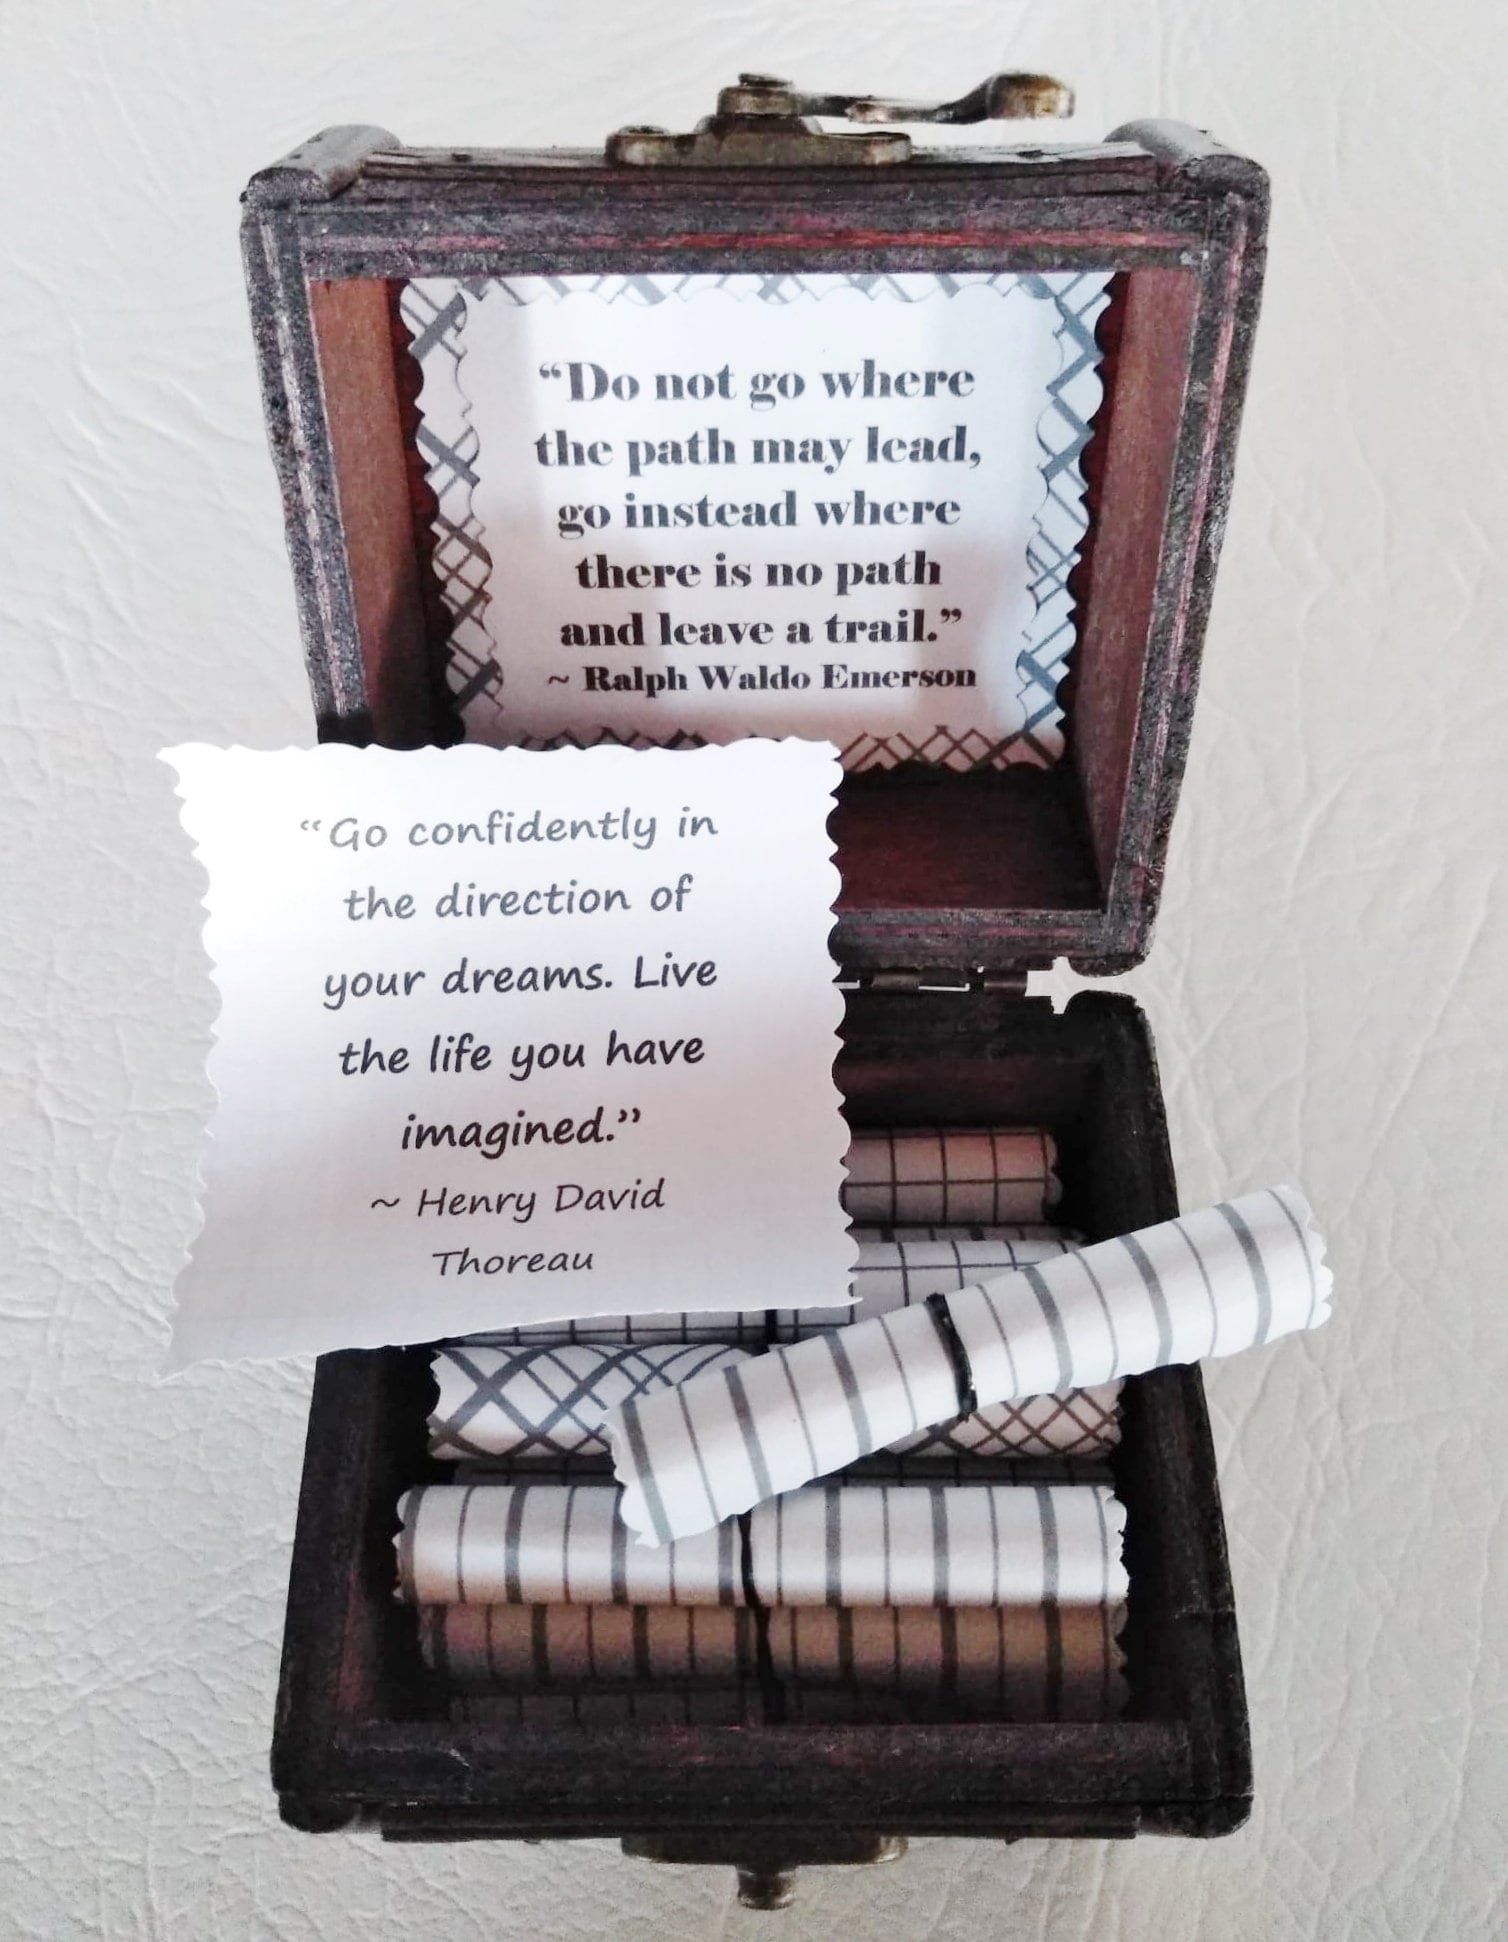 “Do not go where
the path may lead,
go instead where
there is no path
and leave a trail.”
~ Ralph Waldo Emerson
“Go confidently in
the direction of
your dreams. Live
the life you have
imagined.”
~ Henry David
Thoreau